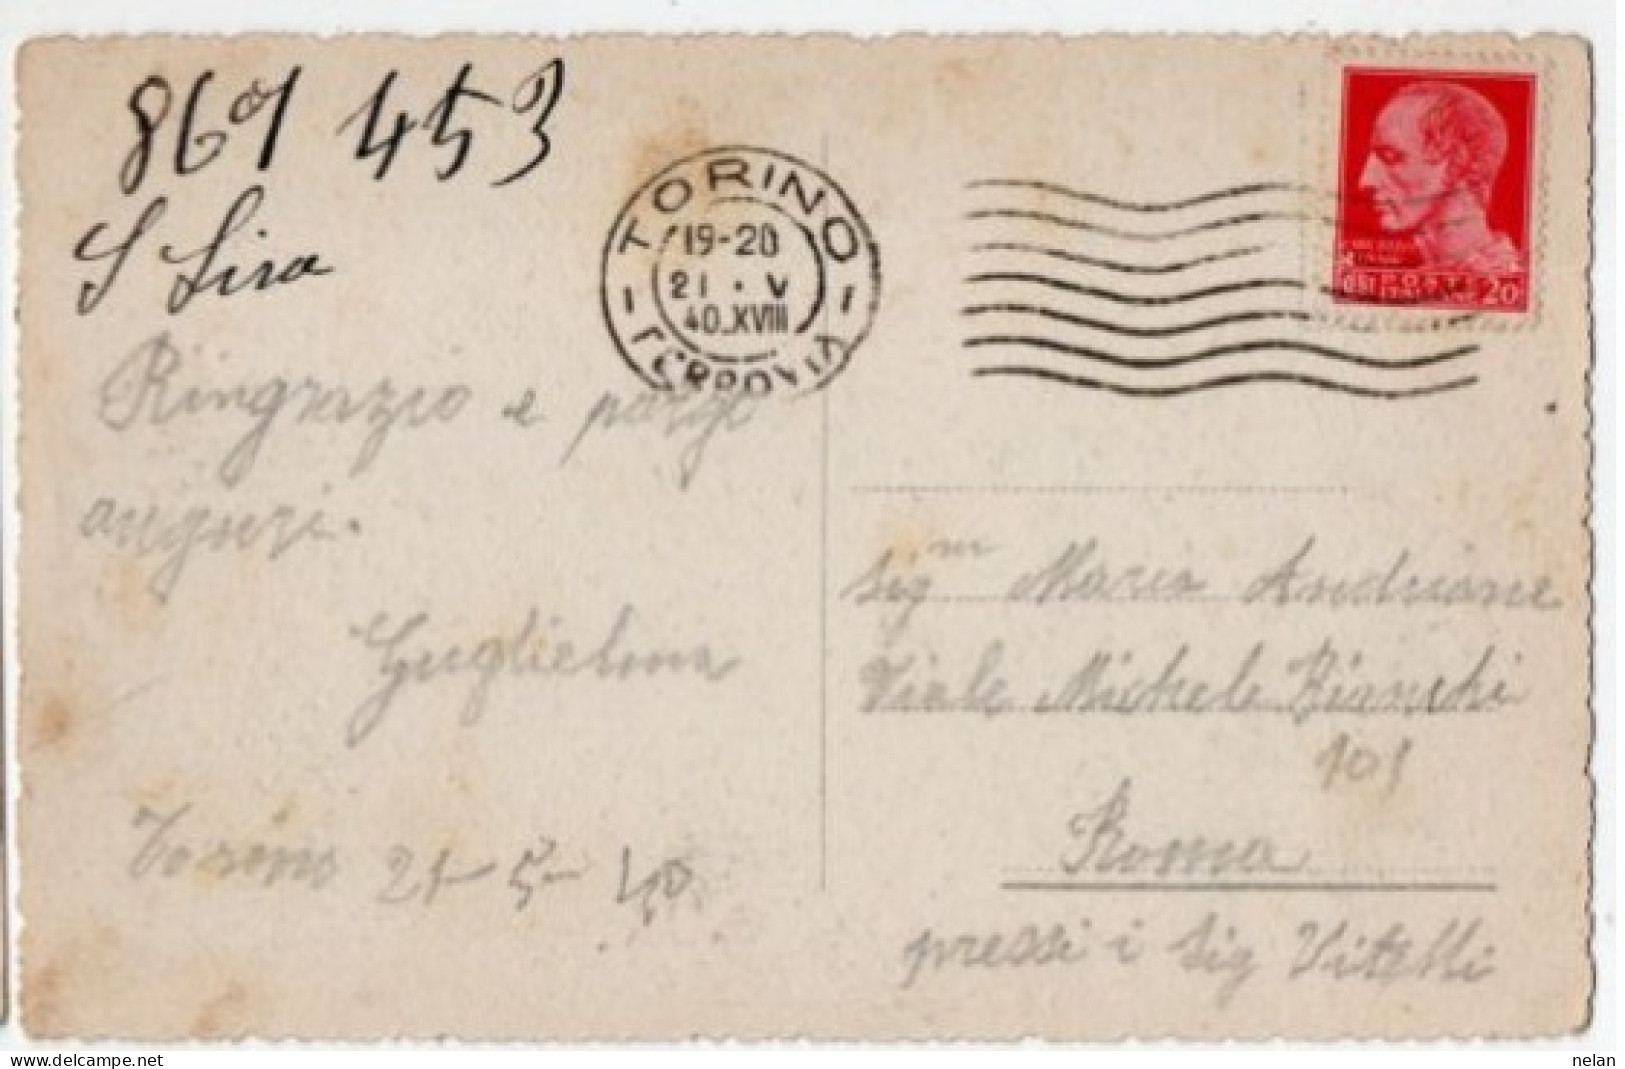 453
S Lisa
TORINO
19-20
21 · V
40.XVIII
FERROVIA
POSTE ITALIANE 20
Ringrazio e porgo
auguri.
Guglielma
Torino 21-5-40
Sig.na Maria Andriane
Viale Michele Bianchi
101
Roma
pressi i Sig Vitelli
nelan